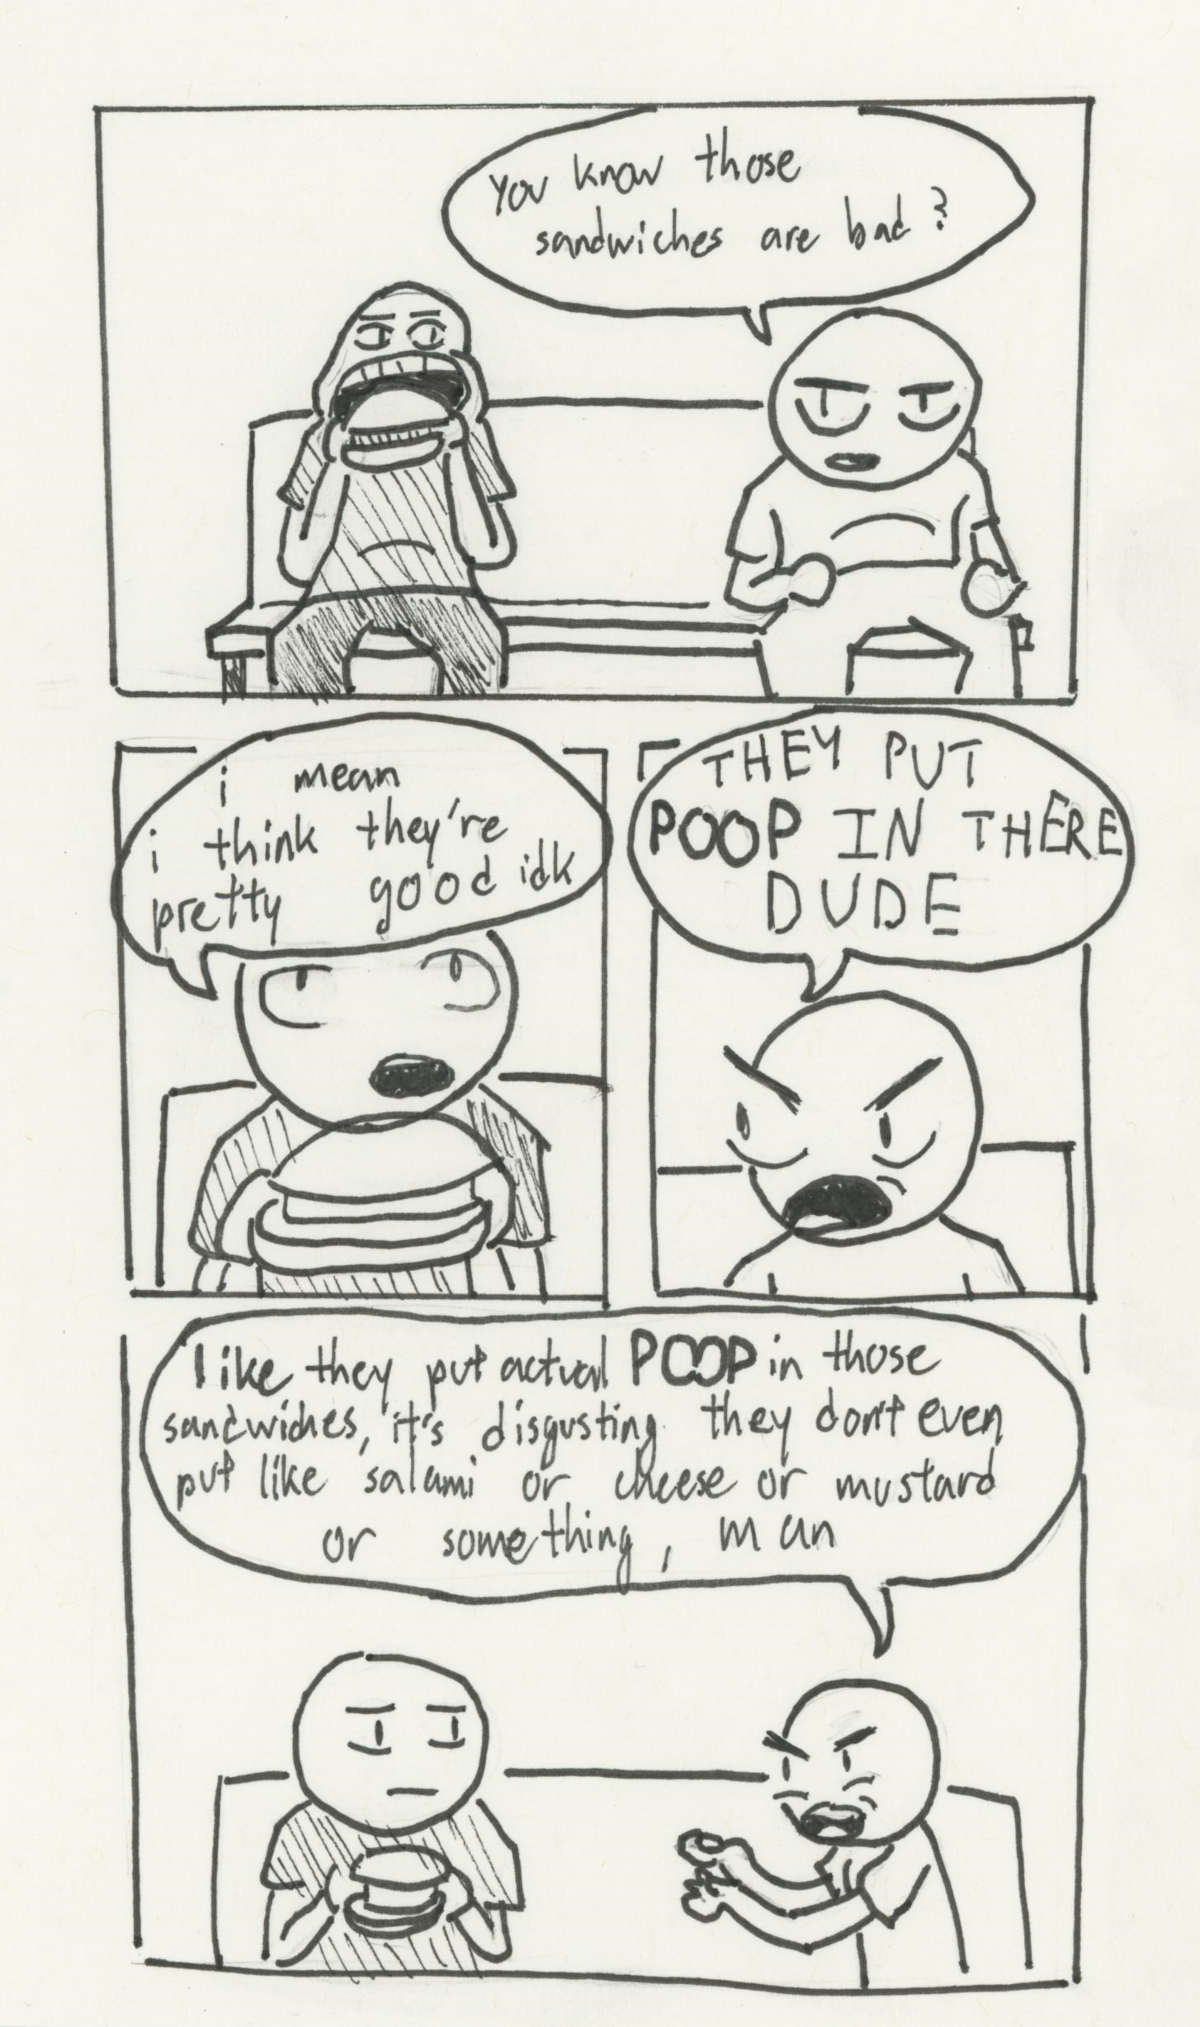 You know those
sandwiches are bad?
i mean
i think they're
pretty good idk
THEY PUT
POOP IN THERE
DUDE
like they put actual POOP in those
sandwiches, it's disgusting they don't even
put like salami or cheese or mustard
or something, man